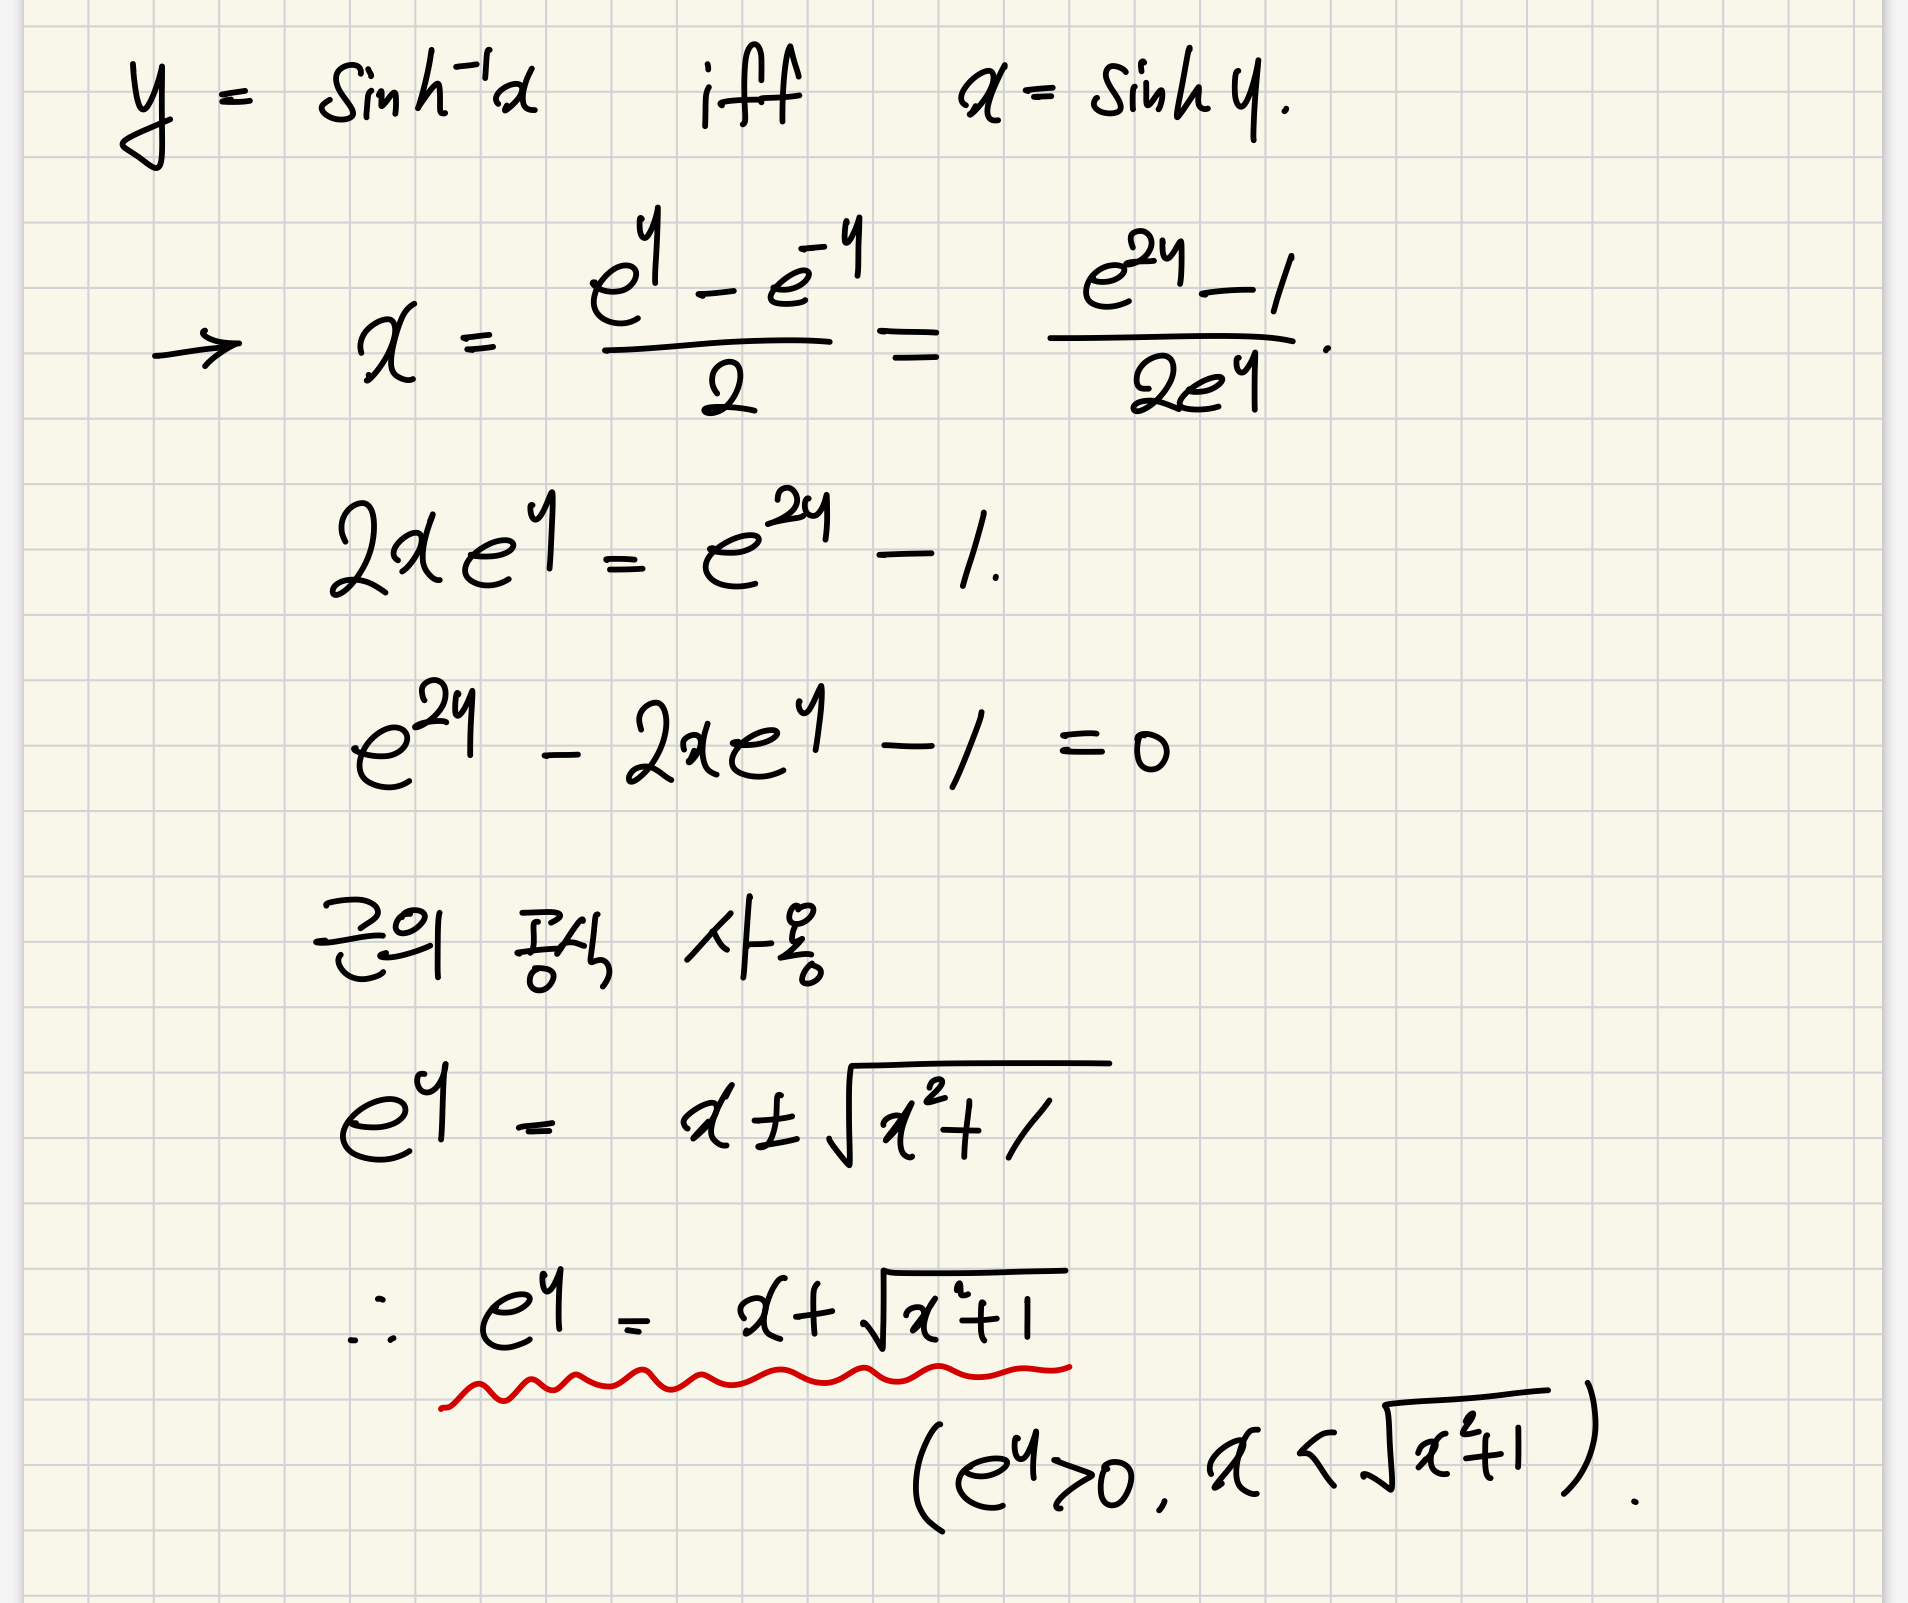 y = sinh⁻¹x iff x = sinh y.
→ x = (e^y - e^-y)/2 = (e^2y - 1)/(2e^y).
2xe^y = e^2y - 1.
e^2y - 2xe^y - 1 = 0
근의 공식 사용
e^y = x ± √(x²+1)
∴ e^y = x + √(x²+1)
(e^y > 0, x < √(x²+1)).